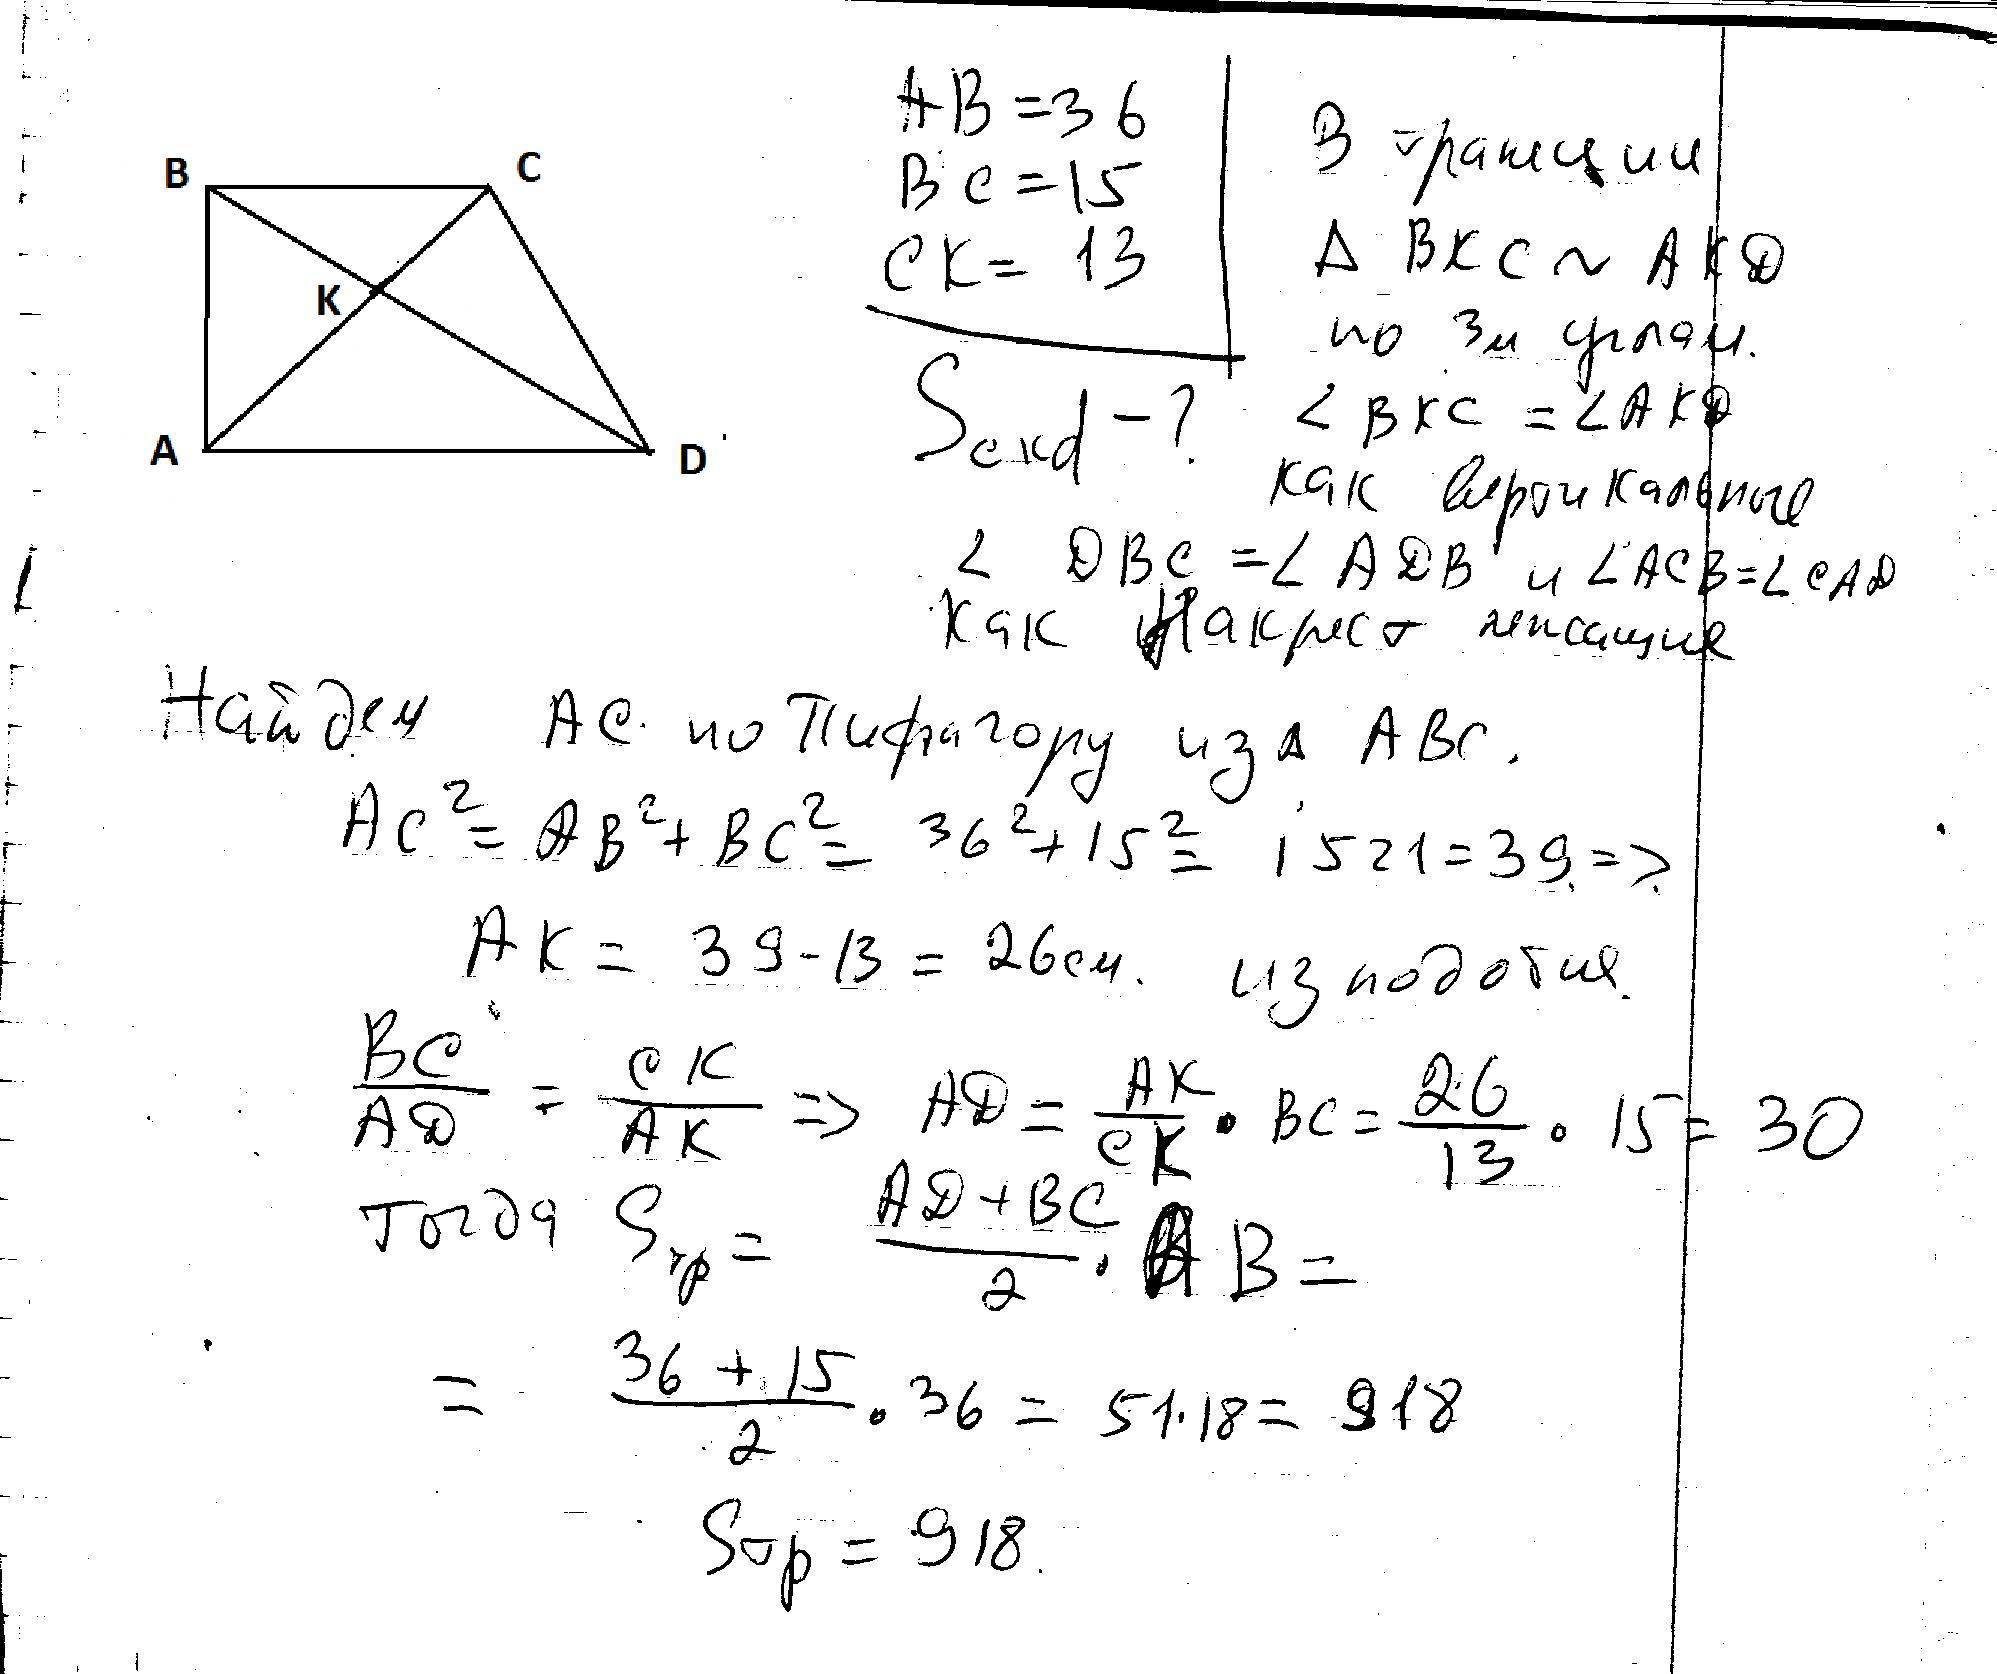 B
C
K
A
D
AB = 36
BC = 15
CK = 13
Sckd - ?
В трапеции
Δ BKC ~ AKD
по 3м углам.
∠ BKC = ∠ AKD
как вертикальные
∠ DBC = ∠ ADB и ∠ ACB = ∠ CAD
как накрест лежащие
Найдем AC по Пифагору из Δ ABC.
AC² = AB² + BC² = 36² + 15² = 1521 = 39 =>
AK = 39 - 13 = 26 см. из подобия.
BC/AD = CK/AK => AD = AK/CK · BC = 26/13 · 15 = 30
тогда Sтр = (AD + BC)/2 · AB =
= (36 + 15)/2 · 36 = 51 · 18 = 918
Sтр = 918.